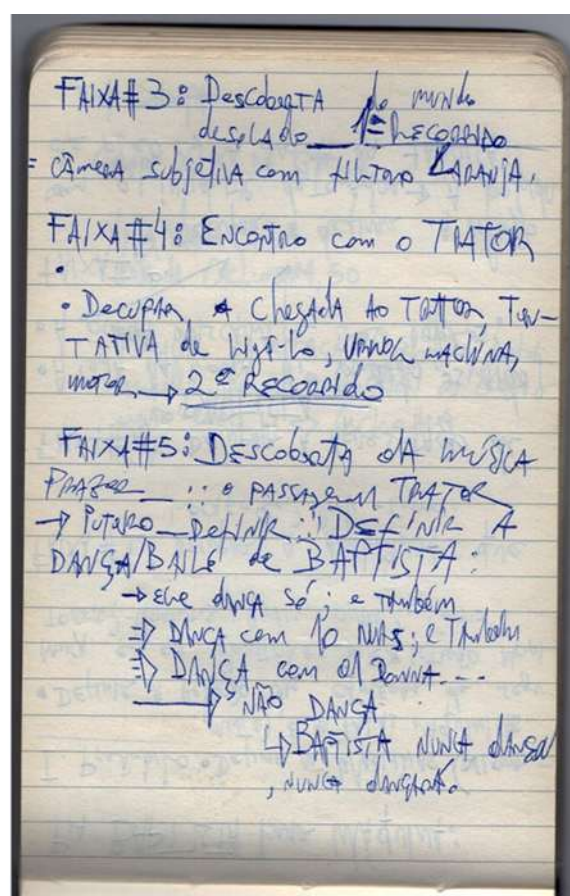 FAIXA #3: Descoberta do mundo
desolado __ 1º RECORRIDO
= câmera subjetiva com filtro LARANJA.
FAIXA #4: ENCONTRO com o TRATOR
• Decupar a chegada ao TRATOR, TEN-
TATIVA de ligá-lo, MACHINA,
motor → 2º RECORRIDO
FAIXA #5: DEScoberta dA MÚSICA
PRAZER __ : o PASSAGEM TRATOR
→ PUTERO __ DEFINIR :: DEFINIR A
DANÇA/BAILE de BAPTISTA:
→ ELE dANÇA Só; e TAMbém
⇒ DANÇA com 10 NUAS; e TAMbém
⇒ DANÇA com 01 DONNA...
→ NÃO DANÇA
↳ BAPTISTA NUNCA dANÇOU
, NUNCA dANÇARÁ.